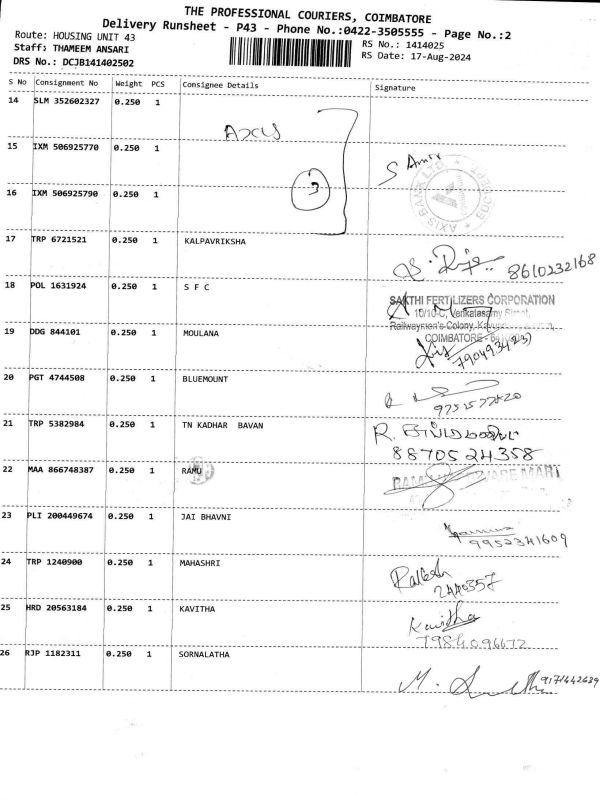 THE PROFESSIONAL COURIERS, COIMBATORE
Delivery Runsheet - P43 - Phone No.:0422-3505555 - Page No.:2
Route: HOUSING UNIT 43
Staff: THAMEEM ANSARI
DRS No.: DCJB141402502
RS No.: 1414025
RS Date: 17-Aug-2024
S No Consignment No Weight PCS Consignee Details Signature
14 SLM 352602327 0.250 1
AXIS
15 IXM 506925770 0.250 1 S Amir
AXIS BANK LTD.
3
16 IXM 506925790 0.250 1
17 TRP 6721521 0.250 1 KALPAVRIKSHA
8610232168
18 POL 1631924 0.250 1 S F C
SAKTHI FERTILIZERS CORPORATION
10/10-C, Venkatasamy Street,
Railwaymen's Colony,
COIMBATORE
19 DDG 844101 0.250 1 MOULANA
20 PGT 4744508 0.250 1 BLUEMOUNT
21 TRP 5382984 0.250 1 TN KADHAR BAVAN R.
8870524358
22 MAA 866748387 0.250 1 RAMU
23 PLI 200449674 0.250 1 JAI BHAVNI
9952341609
24 TRP 1240900 0.250 1 MAHASHRI
2440357
25 HRD 20563184 0.250 1 KAVITHA Kavitha
7984096672
26 RJP 1182311 0.250 1 SORNALATHA
M. 9171442639